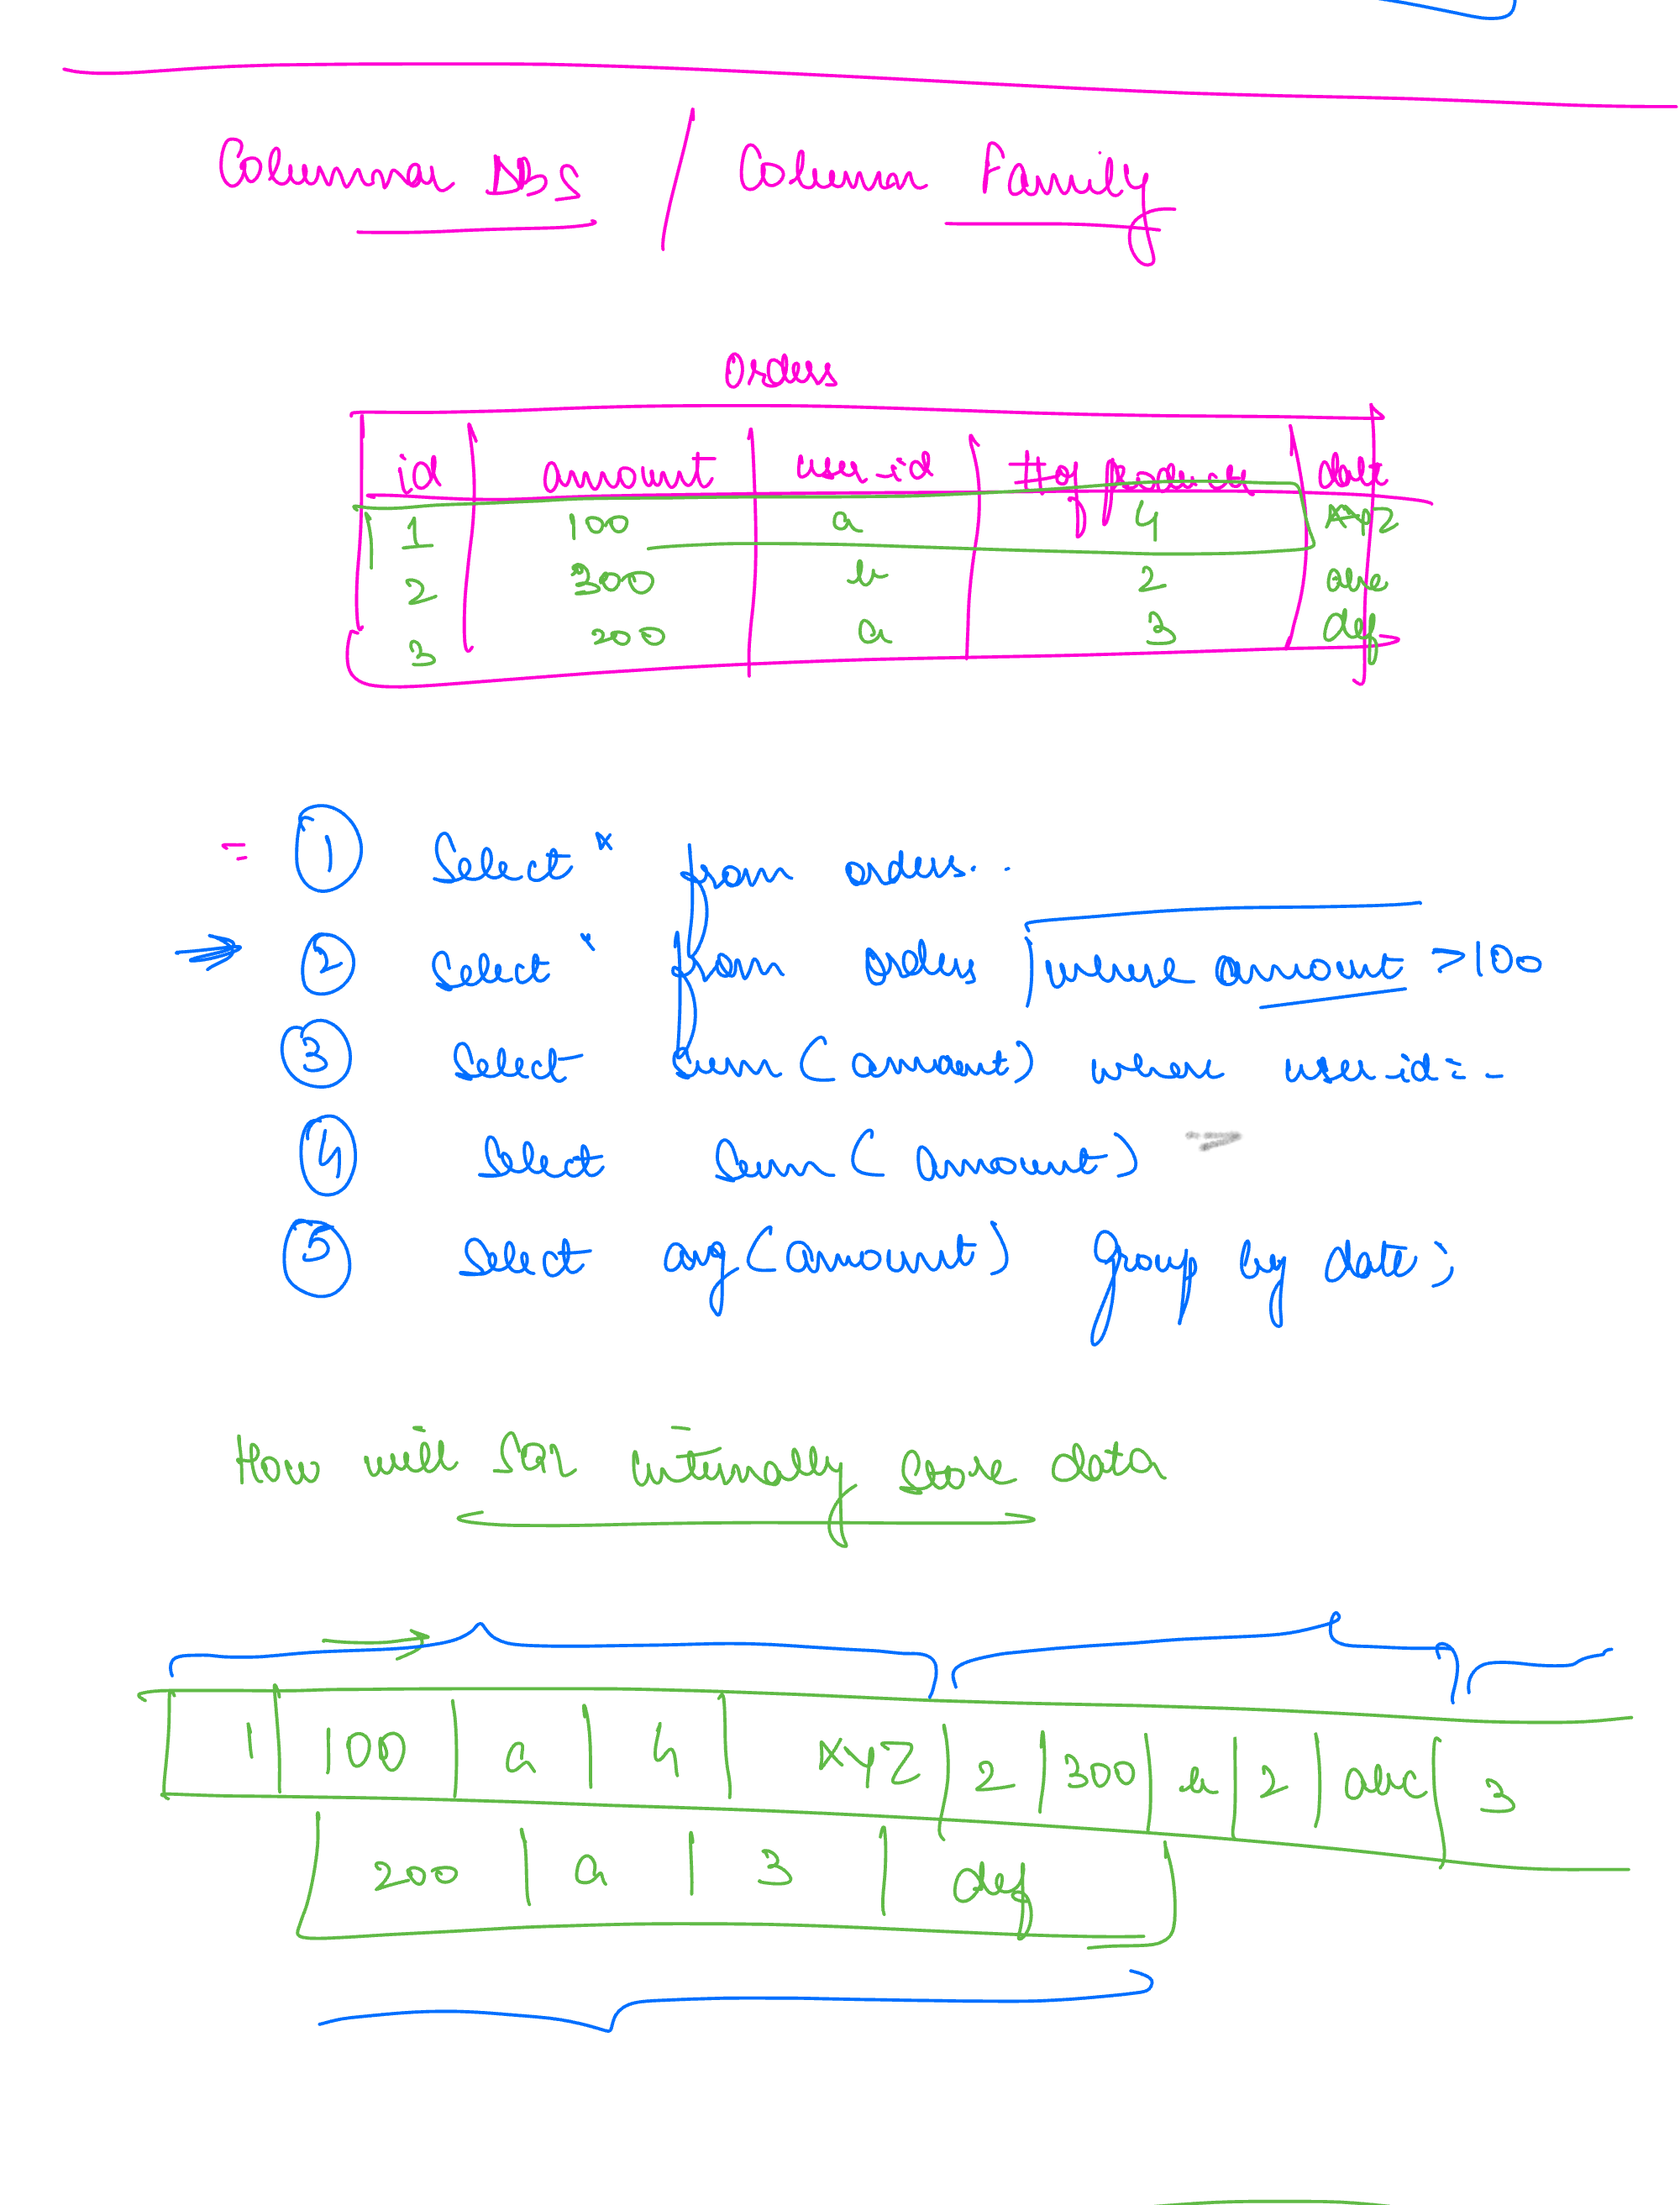 Columnar DBs / Column Family
Orders
id amount user-id # of products date
1 100 a 4 xyz
2 300 b 2 abc
3 200 a 3 def
① Select * from orders..
② Select * from orders where amount >100
③ Select sum (amount) where user-id = -
④ Select Sum (amount)
⑤ Select avg (amount) group by date;
How will SQL internally store data
1 100 a 4 xyz 2 300 b 2 abc 3
200 a 3 def